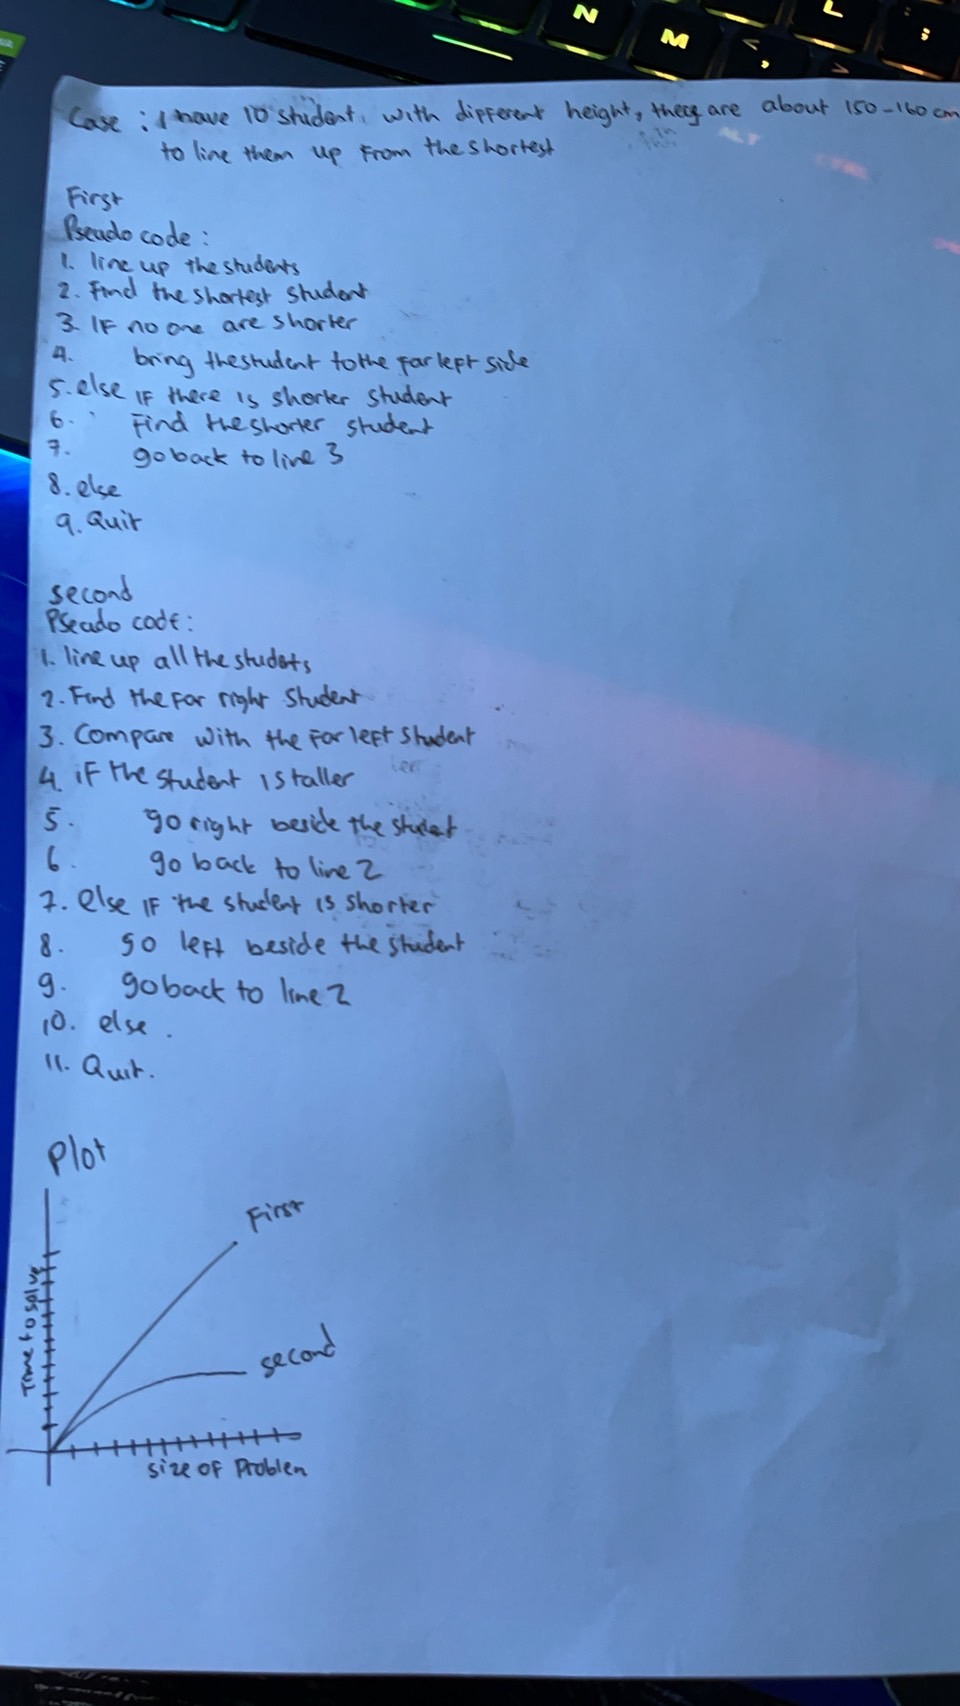 N
M
L
;
<
,
>
Case : I have 10 student, with different height, they are about 150-160 cm
to line them up from the shortest
First
Pseudo code :
1. line up the students
2. Find the shortest student
3. IF no one are shorter
4. bring the student to the far left side
5. else IF there is shorter student
6. Find the shorter student
7. go back to line 3
8. else
9. Quit
second
Pseado code :
1. line up all the students
2. Find the far right student
3. Compare with the far left student
4. if the student is taller
5. go right beside the student
6. go back to line 2
7. else IF the student is shorter
8. go left beside the student
9. go back to line 2
10. else .
11. Quit.
Plot
First
second
Time to solve
size of Problem